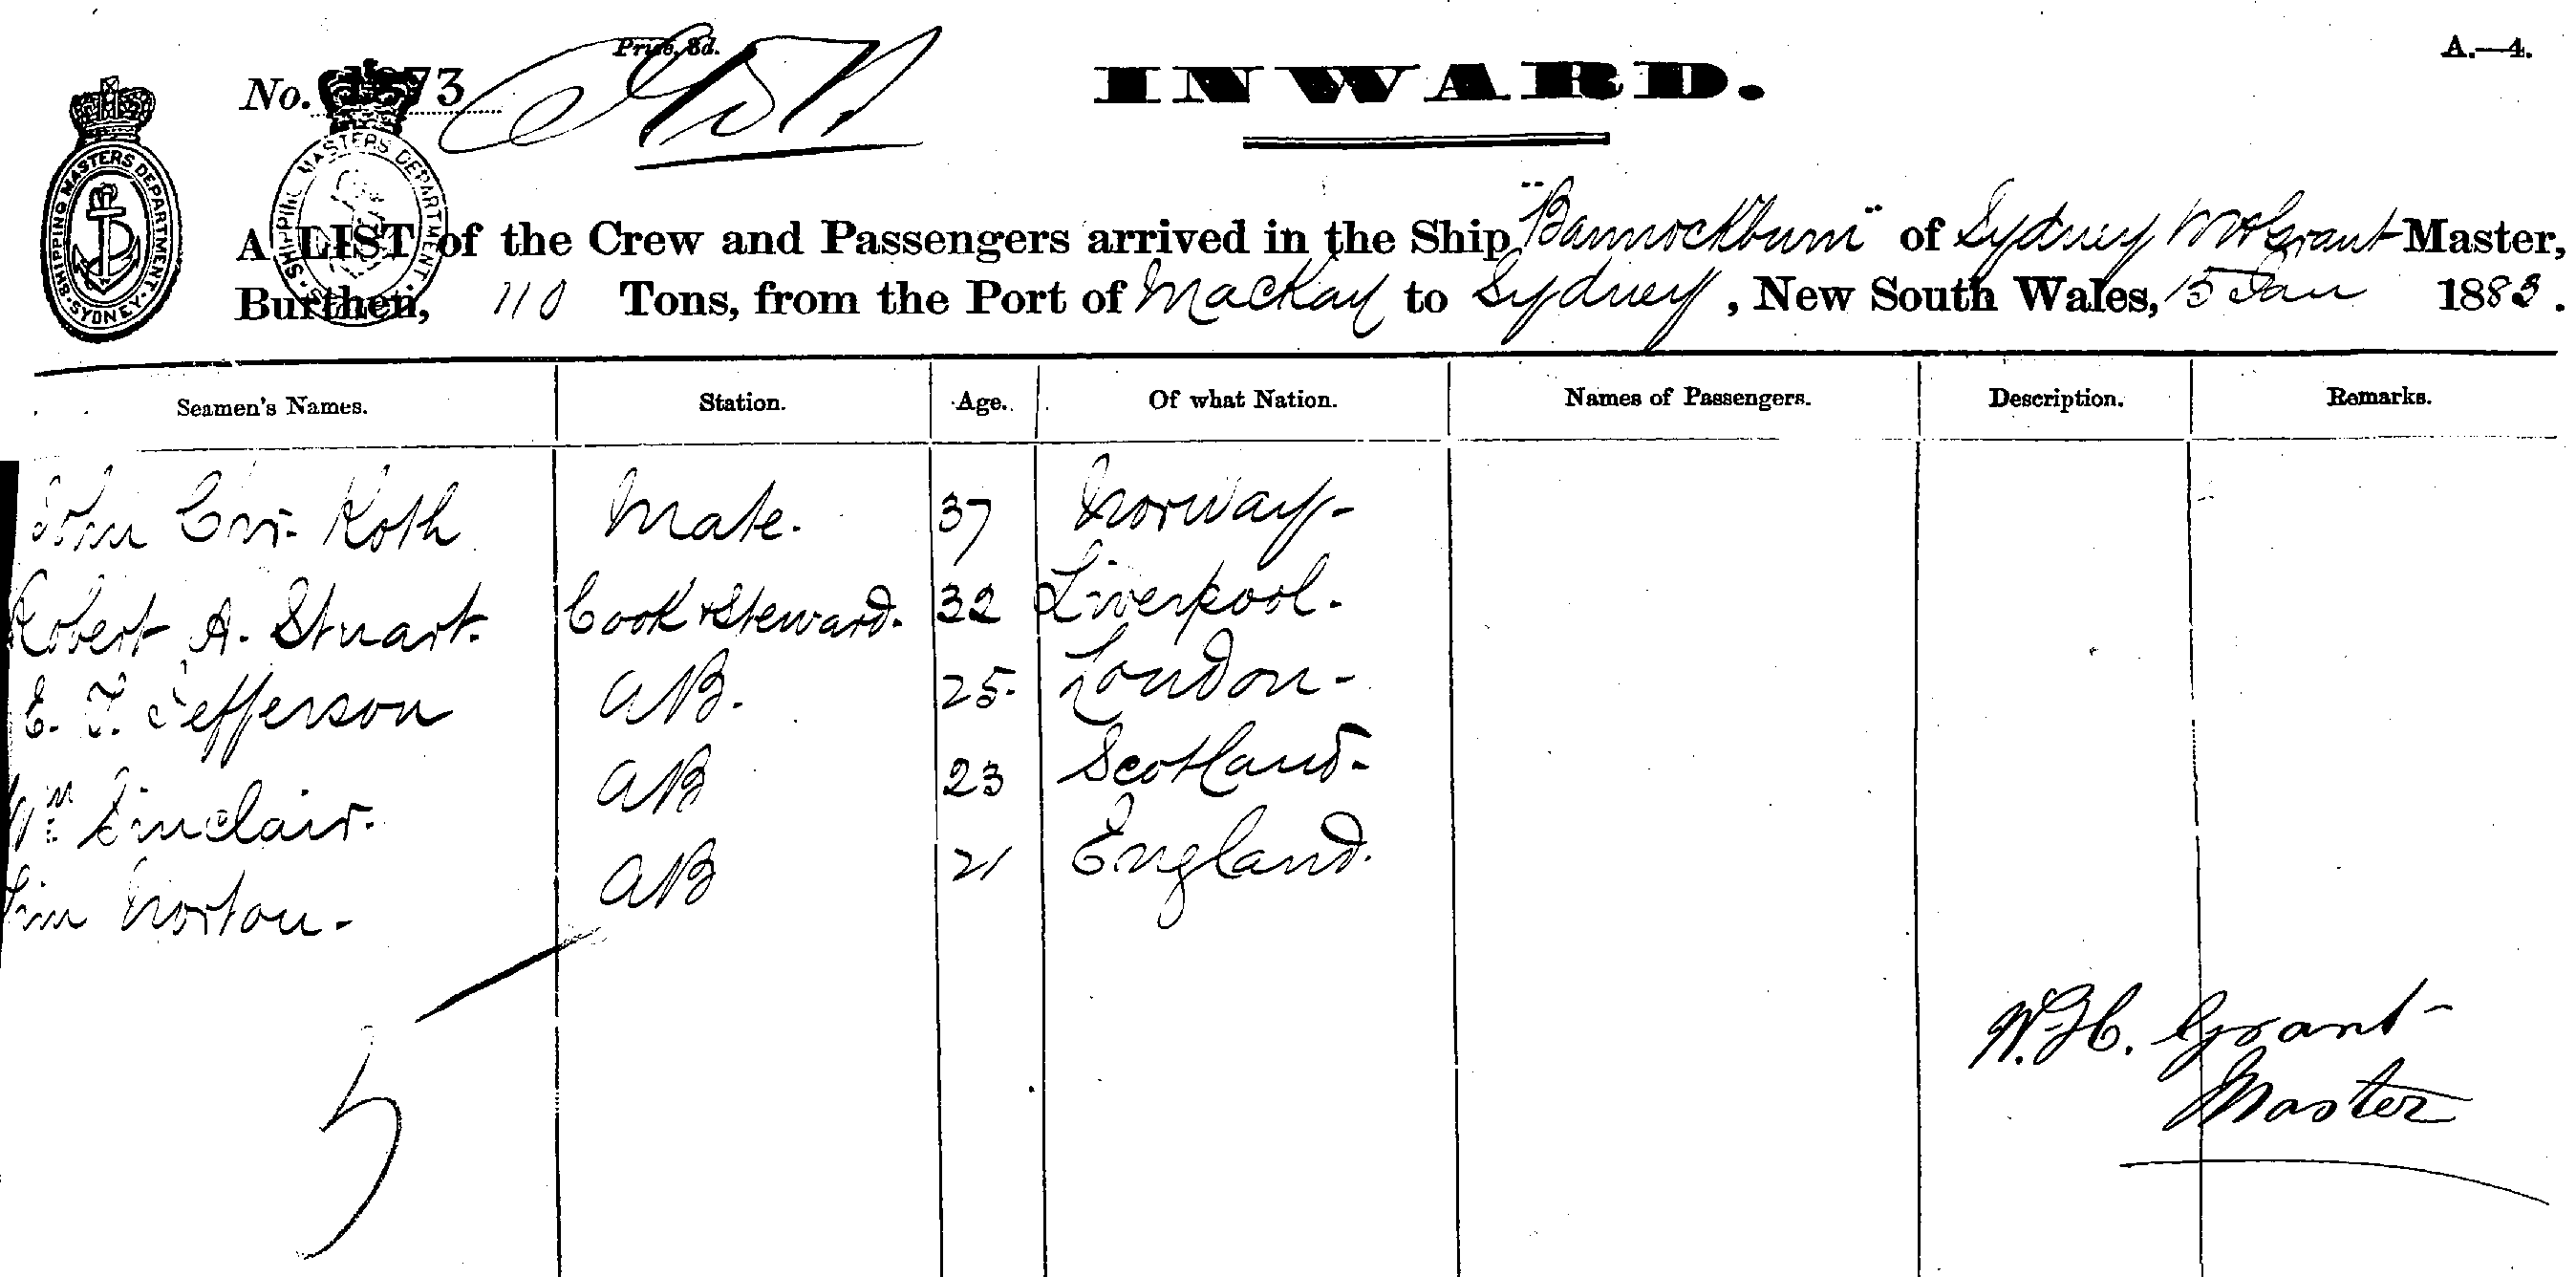 Price, 3d.
A.—4.
No. 73
INWARD.
SHIPPING MASTERS DEPARTMENT · SYDNEY ·
SHIPPING MASTERS DEPARTMENT
A LIST of the Crew and Passengers arrived in the Ship "Bannockburn" of Sydney Grant Master,
Burthen, 110 Tons, from the Port of Mackay to Sydney, New South Wales, 15 Jan 1883.
Seamen's Names. Station. Age. Of what Nation. Names of Passengers. Description. Remarks.
John Koth Mate. 37 Norway-
Robert A. Stuart. Cook & Steward. 32 Liverpool.
E. T. Jefferson AB. 25. London-
Wm Sinclair. AB 23 Scotland-
Norton- AB 21 England.
5
W. H. Grant-
Master